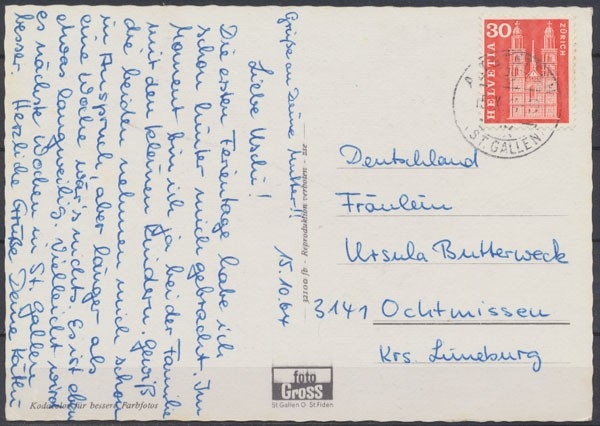 Grüße an Deine Mutter!!
15.10.64
Liebe Uschi!
Die ersten Ferientage habe ich
schon hinter mich gebracht. Im
Moment bin ich ja bei der Familie
mit den kleinen Kindern. Gewiß
die beiden nehmen mich schon
in Anspruch, aber länger als
eine Woche wär's nichts. Es ist eben
etwas langweilig. Vielleicht wird
es nächste Wochen in St. Gallen
besser. Herzliche Grüße Deine
Kodacolor für bessere Farbfotos
32100 fb - Reproduktion verboten -
foto
Gross
St. Gallen O St. Fiden
30
HELVETIA
ZÜRICH
(ST. GALLEN)
Deutschland
Fräulein
Ursula Butterweck
3141 Ochtmissen
Krs. Lüneburg